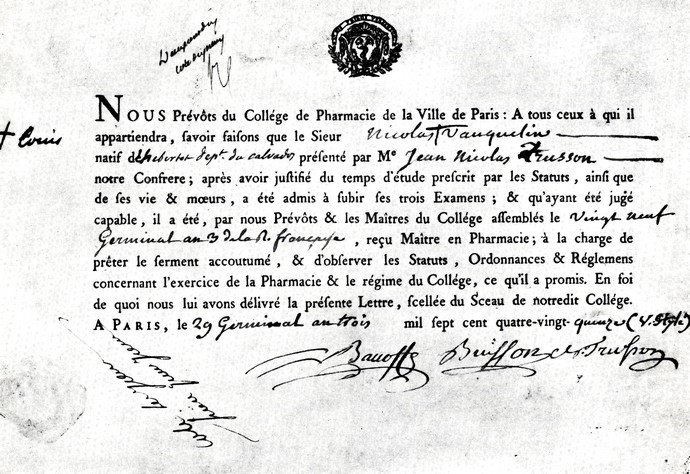 + Louis
NOUS Prévôts du Collége de Pharmacie de la Ville de Paris : A tous ceux à qui il
appartiendra, savoir faisons que le Sieur Nicolas + Vauquelin
natif d'hebertot dept. du calvados présenté par Me Jean Nicolas Trusson
notre Confrere ; après avoir justifié du temps d'étude prescrit par les Statuts, ainsi que
de ses vie & mœurs, a été admis à subir ses trois Examens ; & qu'ayant été jugé
capable, il a été, par nous Prévôts & les Maîtres du Collége assemblés le vingt neuf
Germinal an 3 de la R. française, reçu Maître en Pharmacie ; à la charge de
prêter le serment accoutumé, & d'observer les Statuts, Ordonnances & Réglemens
concernant l'exercice de la Pharmacie & le régime du Collége, ce qu'il a promis. En foi
de quoi nous lui avons délivré la présente Lettre, scellée du Sceau de notredit Collége.
A PARIS, le 29 Germinal an trois mil sept cent quatre-vingt-quinze (V. Style)
Bacoffe Buisson Trusson